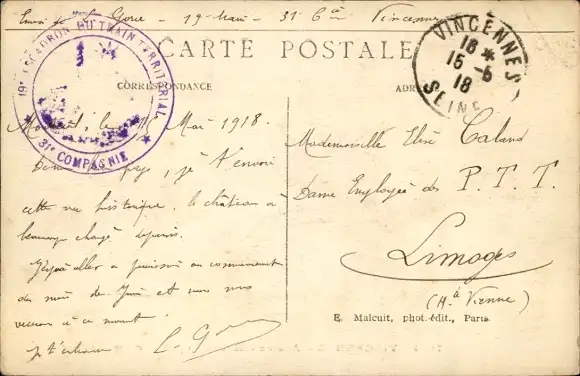 Envoi de Gorce - 19e train - 31e Cie Vincennes
CARTE POSTALE
19e ESCADRON DU TRAIN TERRITORIAL
★ 31e COMPAGNIE ★
VINCENNES
18 *
15 -5
18
SEINE
CORRESPONDANCE
ADR
le 15 Mai 1918.
je t'envoi
cette vue historique, le château a
beaucoup changé depuis.
J'espère aller a au commencement
du mois de Juin et nous nous
verrons à ce moment
je t'embrasse
Mademoiselle Elise Caland
Dame Employée des P. T. T.
Limoges
(Hte Vienne)
E. Malcuit, phot.-édit., Paris.